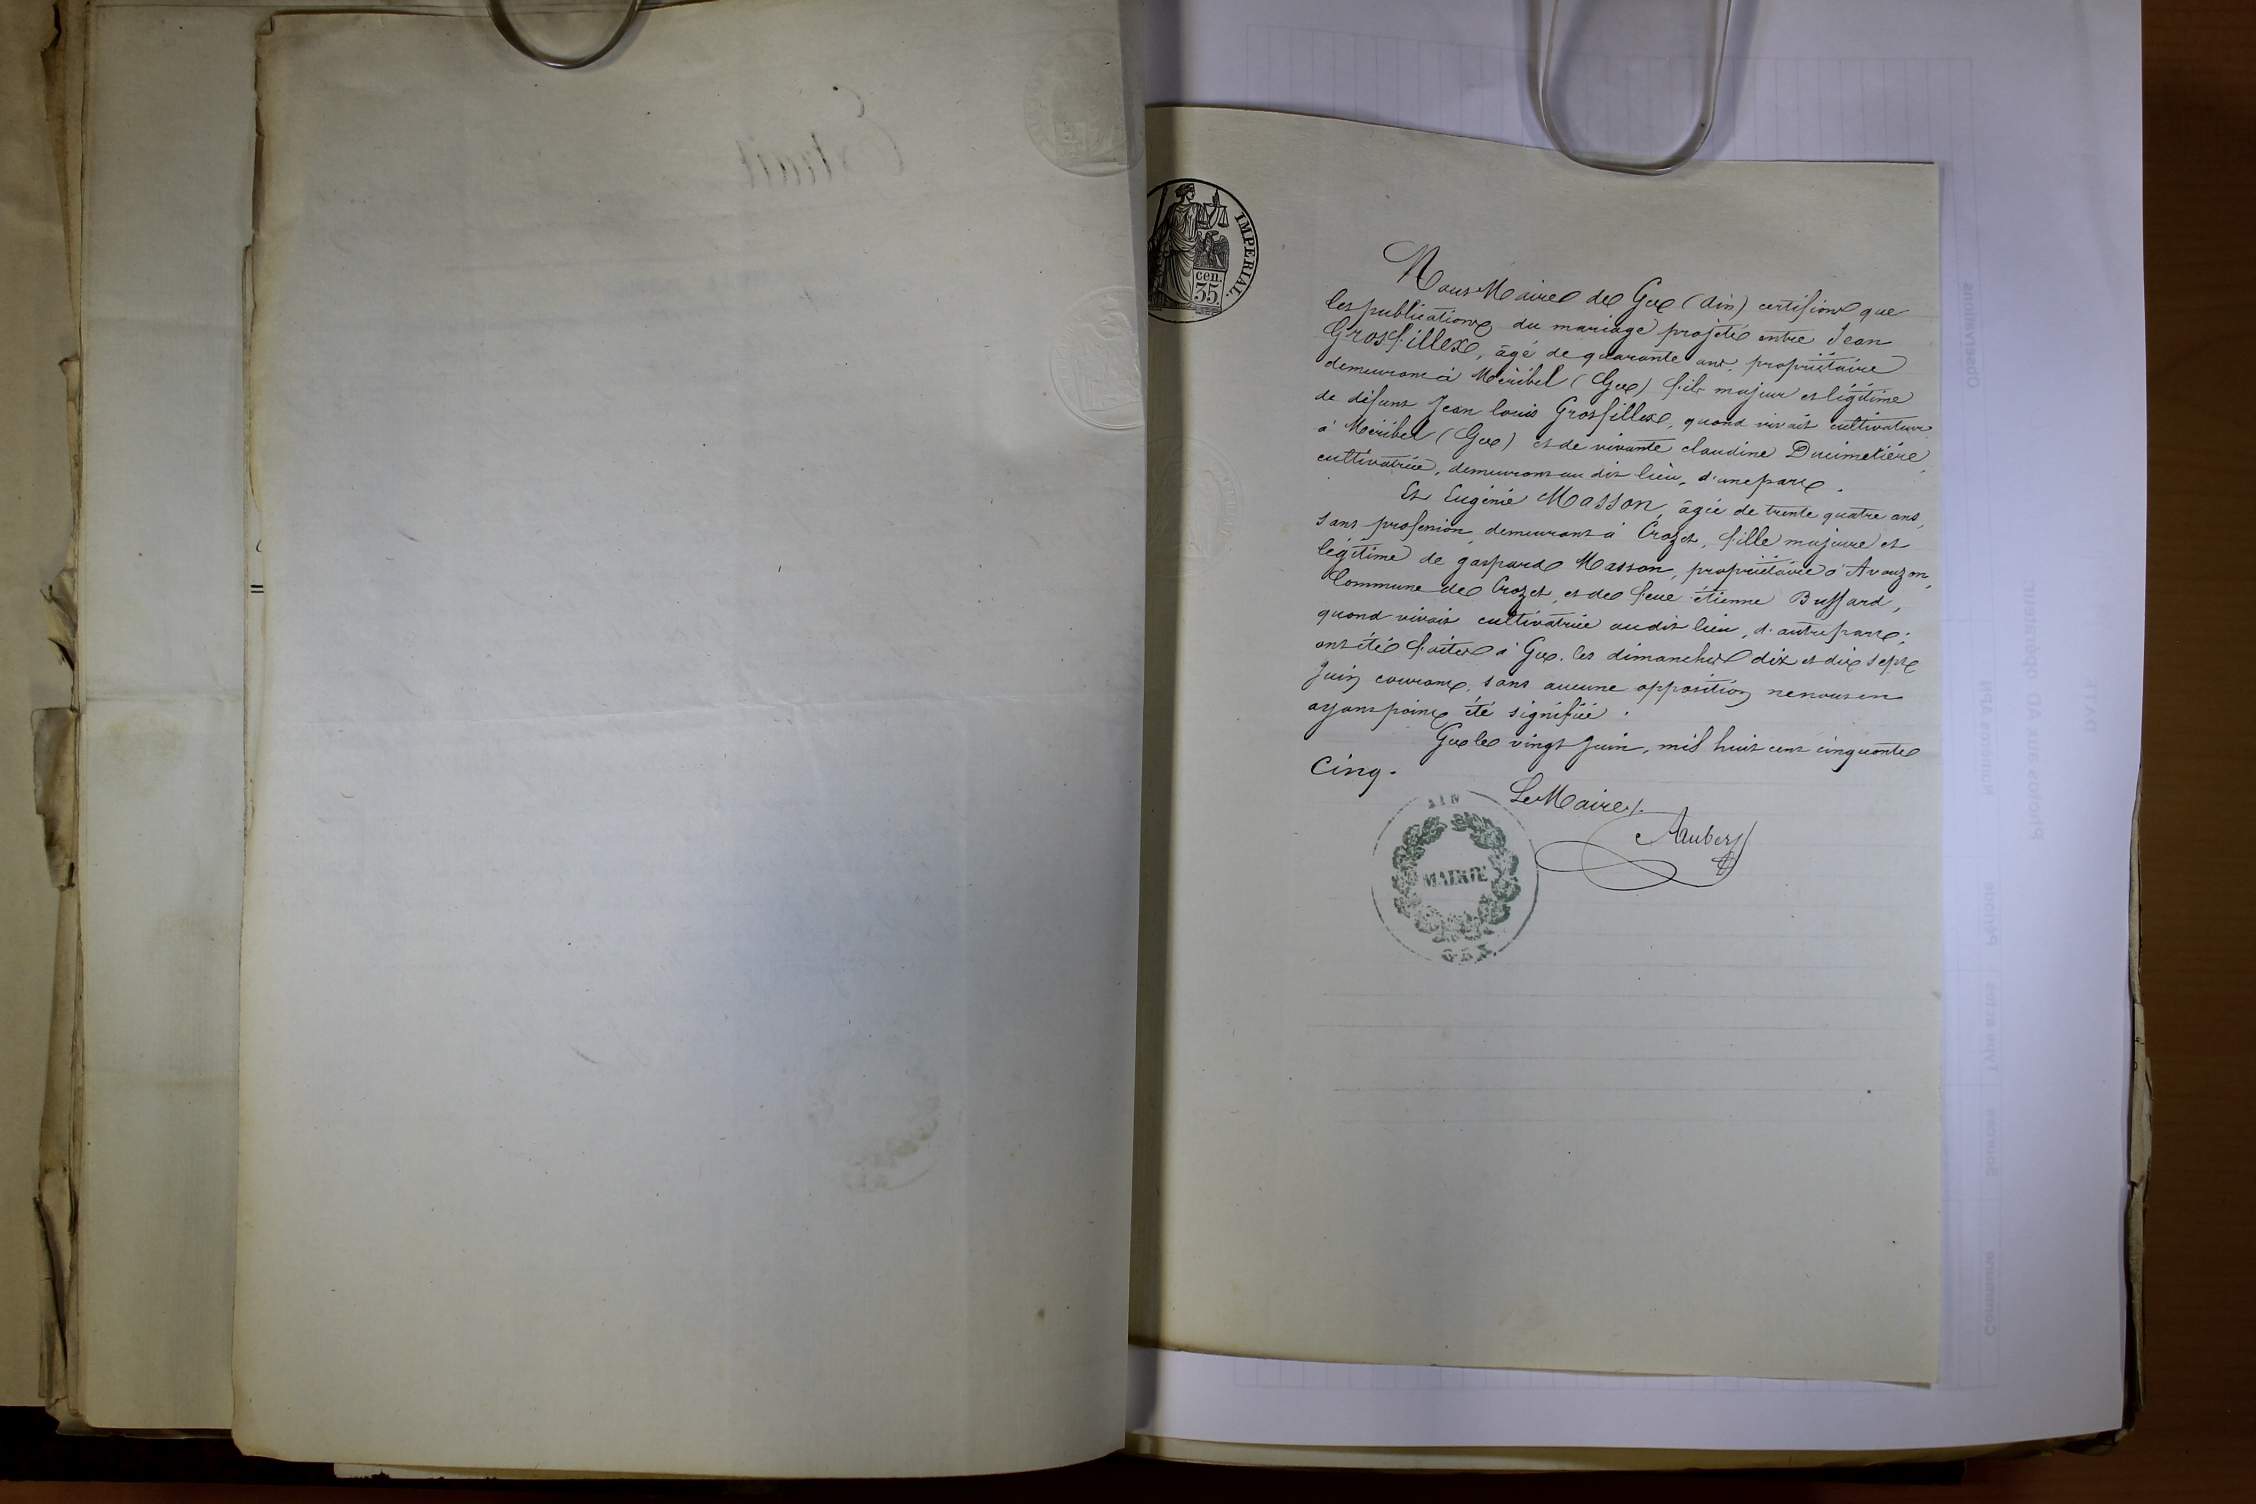 Extrait
IMPERIAL.
cen.
35
Nous Maire de Gex (Ain) certifions que
les publications du mariage projeté entre Jean
Grosfillex, âgé de quarante ans, propriétaire
demeurant à Méribel (Gex) fils majeur et légitime
de défunt Jean louis Grosfillex, quand vivait cultivateur
à Méribel (Gex) et de vivante claudine Ducimetière,
cultivatrice, demeurant au dit lieu, d'une part.
Et Eugénie Masson, âgée de trente quatre ans,
sans profession, demeurant à Crozet, fille majeure et
légitime de gaspard Masson, propriétaire à Avouzon,
Commune de Crozet, et de feue étienne Buffard,
quand vivait cultivatrice audit lieu, d'autre part;
ont été faites à Gex, les dimanches dix et dix sept
Juin courant, sans aucune opposition ne nous en
ayant point été signifiée.
Gex le vingt Juin, mil huit cent cinquante
Cinq.
Le Maire,
Aubert
AIN
MAIRIE
GEX
Observations
Photos aux AD
Période
Type actes
Commune